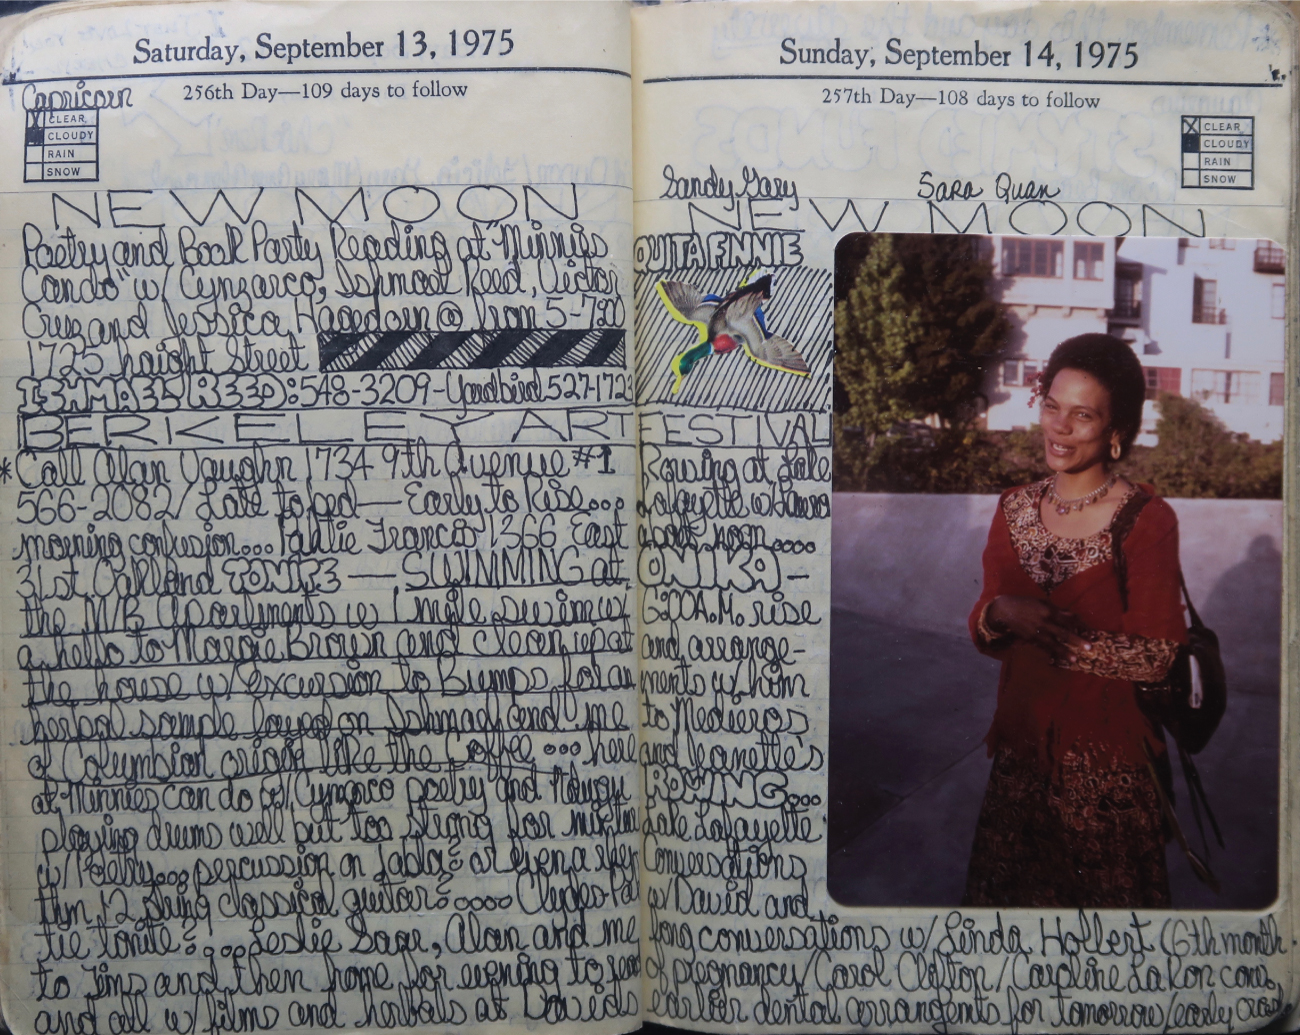 Saturday, September 13, 1975
256th Day—109 days to follow
Capricorn
CLEAR
CLOUDY
RAIN
SNOW
NEW MOON
Poetry and Book Party Reading at "Minnies
Cando" w/ Cynzarco, Ishmael Reed, Victor
Cruz and Jessica Hagedorn @ from 5-7:30
1725 haight Street
ISHMAEL REED: 548-3209-Yardbird 527-1723
BERKELEY ART
*Call Alan Vaughn 1734 9th Avenue #1
566-2082/ Late to bed— Early to Rise...
morning confusion... Francis 1366 East
31st Oakland TONITE — SWIMMING at
the M/B Apartments w/ 1 mile swim w/
a hello to Margie Brown and clean up at
the house w/ excursion to Bumps for an
herbal sample layed on Ishmael and me
of Columbian origin like the Coffee ... here
at Minnies can do w/ Cynzarco poetry and
playing drums well but too strong for
w/ Poetry... percussion on Tabla? or even a
thin 12 string classical guitar?.... Clydes
tie tonite?... Leslie Alan and me
to Jims and then home for evening to
and all w/ films and herbals at Davids
Sunday, September 14, 1975
257th Day—108 days to follow
CLEAR
CLOUDY
RAIN
SNOW
Sandy Gary
Sara Quan
NEW MOON
FESTIVAL
Rowing at Lake
Lafayette w/
about noon....
ONIKA-
6:00 A.M. rise
and arrange-
ments w/ him
to Medieros
and Jeanette's
ROWING...
Lake Lafayette
Conversations
w/ David and
long conversations w/ Linda Hollert (6th month
of pregnancy/ Carol Clifton/ Caroline LaRon
earlier dental arrangents for tomorrow/early